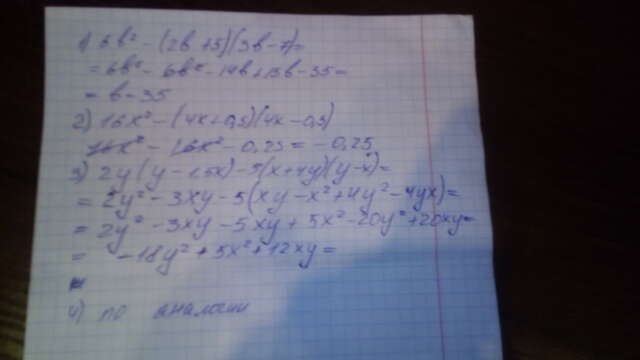 1) 6b² - (2b+5)(3b-7)=
= 6b² - 6b² - 14b+15b-35=
= b-35
2) 16x² - (4x+0,5)(4x-0,5)
16x² - 16x² - 0,25 = -0,25
3) 2y(y-1,5x)-5(x+4y)(y-x)=
= 2y² - 3xy - 5(xy-x²+4y²-4yx)=
= 2y² - 3xy - 5xy + 5x² - 20y² + 20xy=
= -18y² + 5x² + 12xy =
=
4) по аналогии